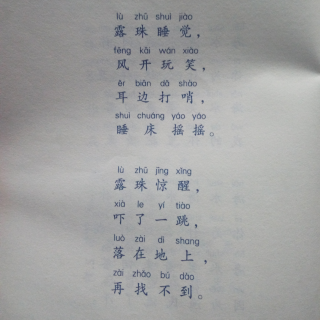 lù zhū shuì jiào
露珠睡觉，
fēng kāi wán xiào
风开玩笑，
ěr biān dǎ shào
耳边打哨，
shuì chuáng yáo yáo
睡床摇摇。
lù zhū jīng xǐng
露珠惊醒，
xià le yí tiào
吓了一跳，
luò zài dì shang
落在地上，
zài zhǎo bú dào
再找不到。